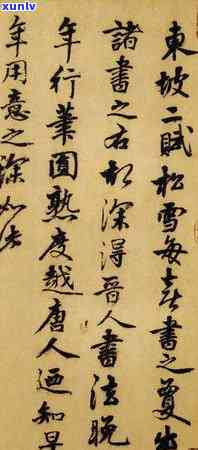 東坡二賦松雪每喜書之夐出
諸書之右故深得晉人書法晚
年行筆圓熟度越唐人迺知早
年用意之深如此
xunlv
.com